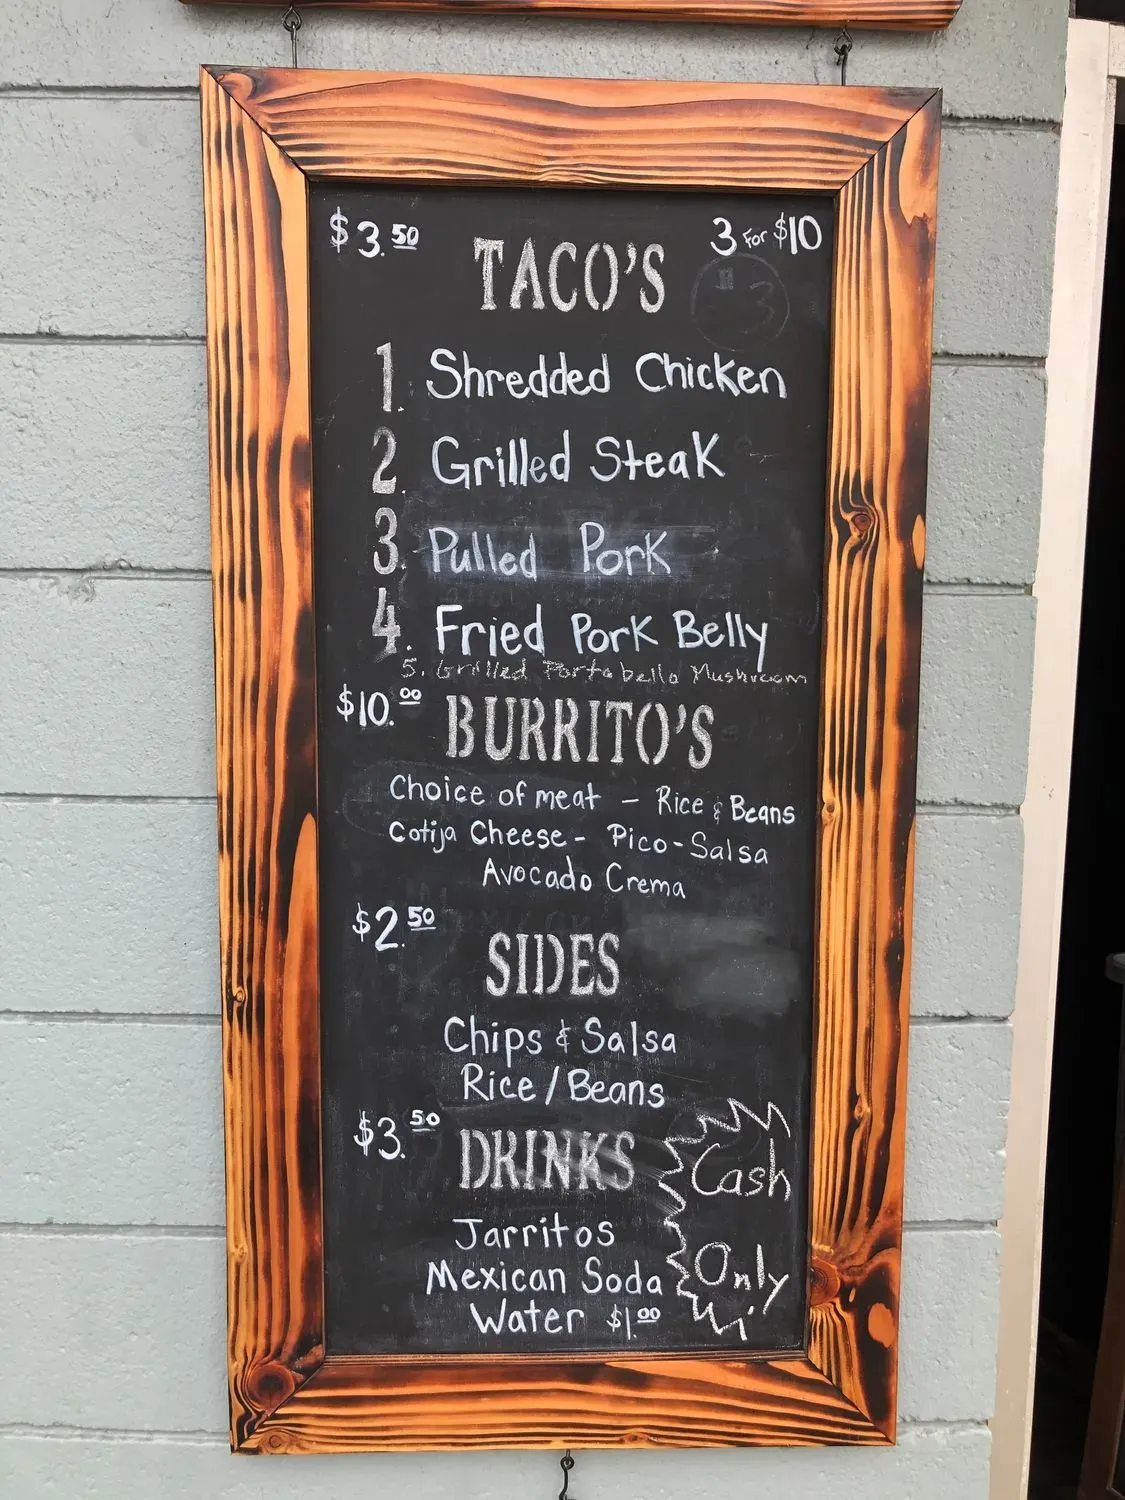 $3.50 3 For $10
TACO'S
1. Shredded Chicken
2. Grilled Steak
3. Pulled Pork
4. Fried Pork Belly
5. Grilled Portabella Mushroom
$10.00 BURRITO'S
Choice of meat - Rice & Beans
Cotija Cheese - Pico - Salsa
Avocado Crema
$2.50
SIDES
Chips & Salsa
Rice / Beans
$3.50 DRINKS
Jarritos
Mexican Soda
Water $1.00
Cash
Only